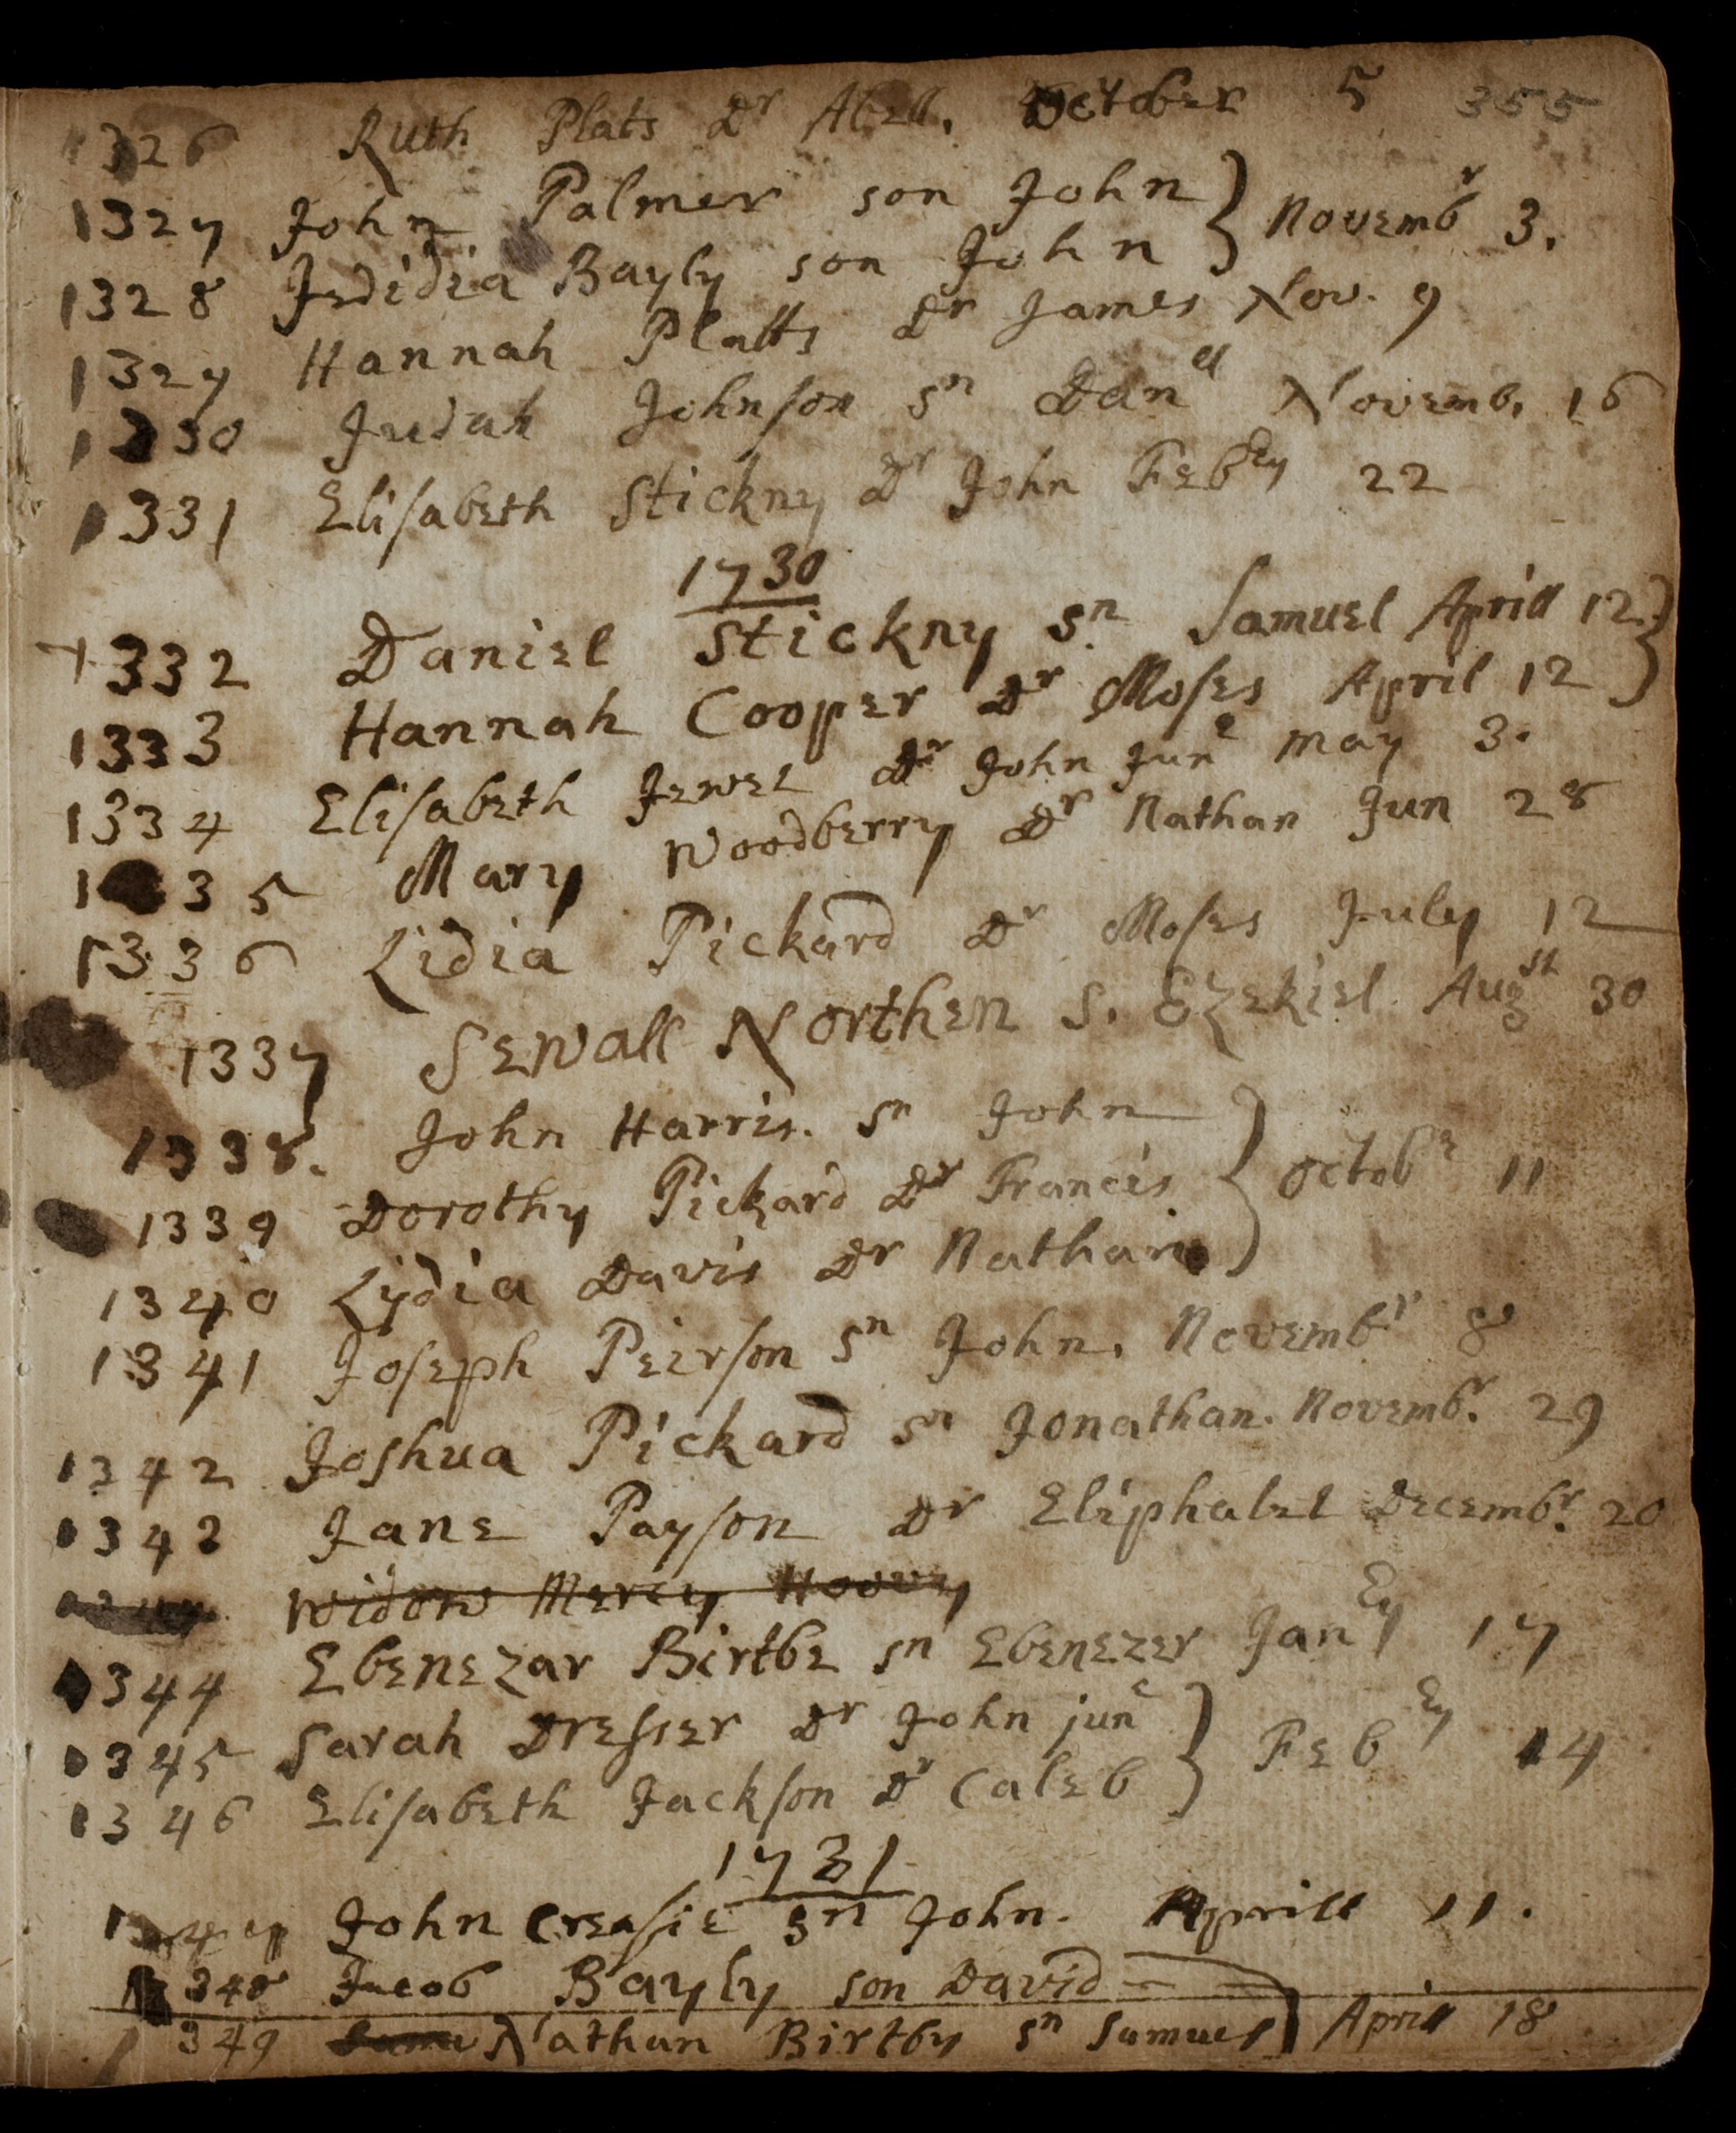 1326 Ruth Plats Dr Abell. October 5 355
1327 John Palmer son John } Novembr 3.
1328 Jedidia Bayly son John
1329 Hannah Platts Dr James Nov. 9
1330 Judah Johnson sn Danel Novemb. 16
1331 Elisabeth Stickny Dr John Febry 22
1730
1332 Daniel Stickny sn Samuel Aprill 12. }
1333 Hannah Cooper Dr Moses April 12
1334 Elisabeth Jewet Dr John Junr may 3.
1335 Mary Woodberry Dr Nathan Jun 28
1336 Lidia Pickard Dr Moses July 12
1337 Sewall Northen S. Ezekiel Augst 30
1338. John Harris. sn John
1339 Dorothy Pickard Dr Francis } Octobr 11
1340 Lydia Davis Dr Nathan
1341 Joseph Peirson sn John. Novembr 8
1342 Joshua Pickard sn Jonathan. Novembr. 29
1343 Jane Payson Dr Eliphalet Decembr. 20
Widow Mercy
1344 Ebenezar Birtbe sn Ebenezer Janry 17
1345 Sarah Dresser Dr John junr } Febry 14
1346 Elisabeth Jackson Dr Caleb
1731
1347 John Creasie sn John. Aprill 11.
1348 Jacob Bayly son David
1349 Nathan Birtby sn Samuel } Aprill 18